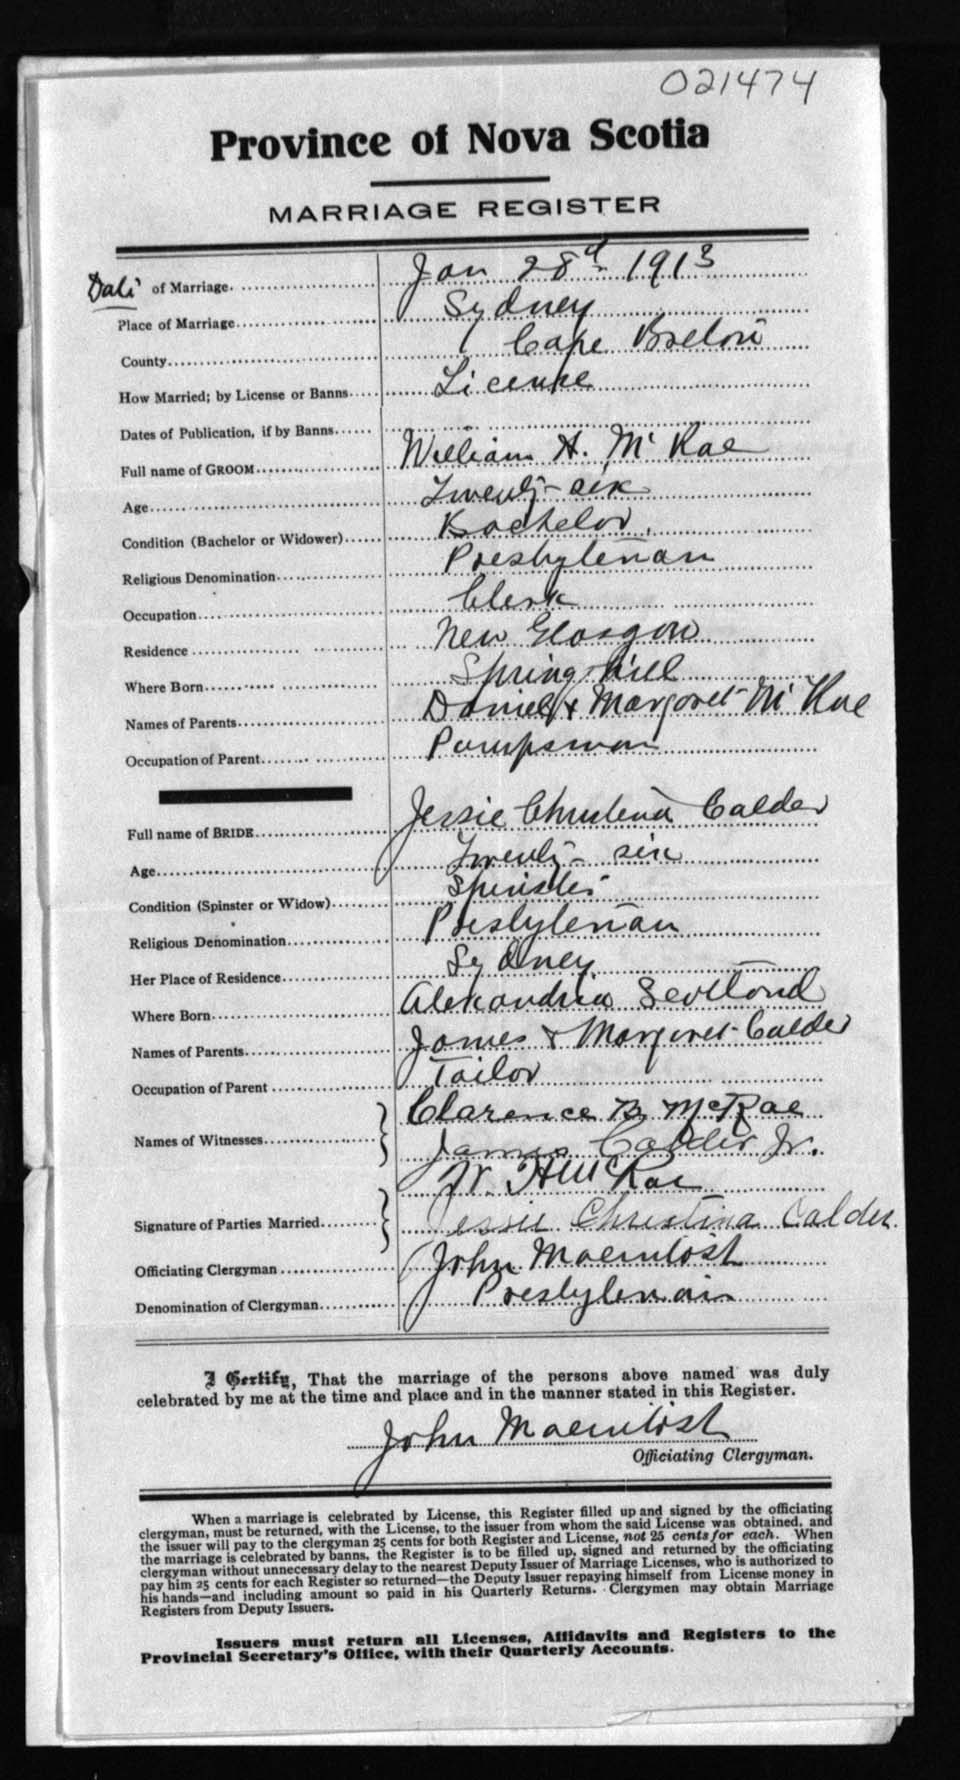 021474
Province of Nova Scotia
MARRIAGE REGISTER
Date of Marriage. Jan 28th 1913
Place of Marriage Sydney
County Cape Breton
How Married; by License or Banns License
Dates of Publication, if by Banns
Full name of GROOM William H. McRae
Age Twenty-six
Condition (Bachelor or Widower) Bachelor.
Religious Denomination Presbyterian
Occupation Clerk
Residence New Glasgow
Where Born Spring Hill
Names of Parents Daniel & Margaret McRae
Occupation of Parent Pumpsman
Full name of BRIDE Jessie Christena Calder
Age Twenty-six
Condition (Spinster or Widow) Spinster
Religious Denomination Presbyterian
Her Place of Residence Sydney
Where Born Alexandria Scotland
Names of Parents James & Margaret Calder
Occupation of Parent Tailor
Names of Witnesses Clarence B. McRae
James Calder Jr.
Signature of Parties Married W. H. McRae
Jessie Christina Calder.
Officiating Clergyman John Macintosh
Denomination of Clergyman Presbyterian
I Certify, That the marriage of the persons above named was duly
celebrated by me at the time and place and in the manner stated in this Register.
John Macintosh
Officiating Clergyman.
When a marriage is celebrated by License, this Register filled up and signed by the officiating
clergyman, must be returned, with the License, to the issuer from whom the said License was obtained, and
the issuer will pay to the clergyman 25 cents for both Register and License, not 25 cents for each. When
the marriage is celebrated by banns, the Register is to be filled up, signed and returned by the officiating
clergyman without unnecessary delay to the nearest Deputy Issuer of Marriage Licenses, who is authorized to
pay him 25 cents for each Register so returned—the Deputy Issuer repaying himself from License money in
his hands—and including amount so paid in his Quarterly Returns. Clergymen may obtain Marriage
Registers from Deputy Issuers.
Issuers must return all Licenses, Affidavits and Registers to the
Provincial Secretary's Office, with their Quarterly Accounts.